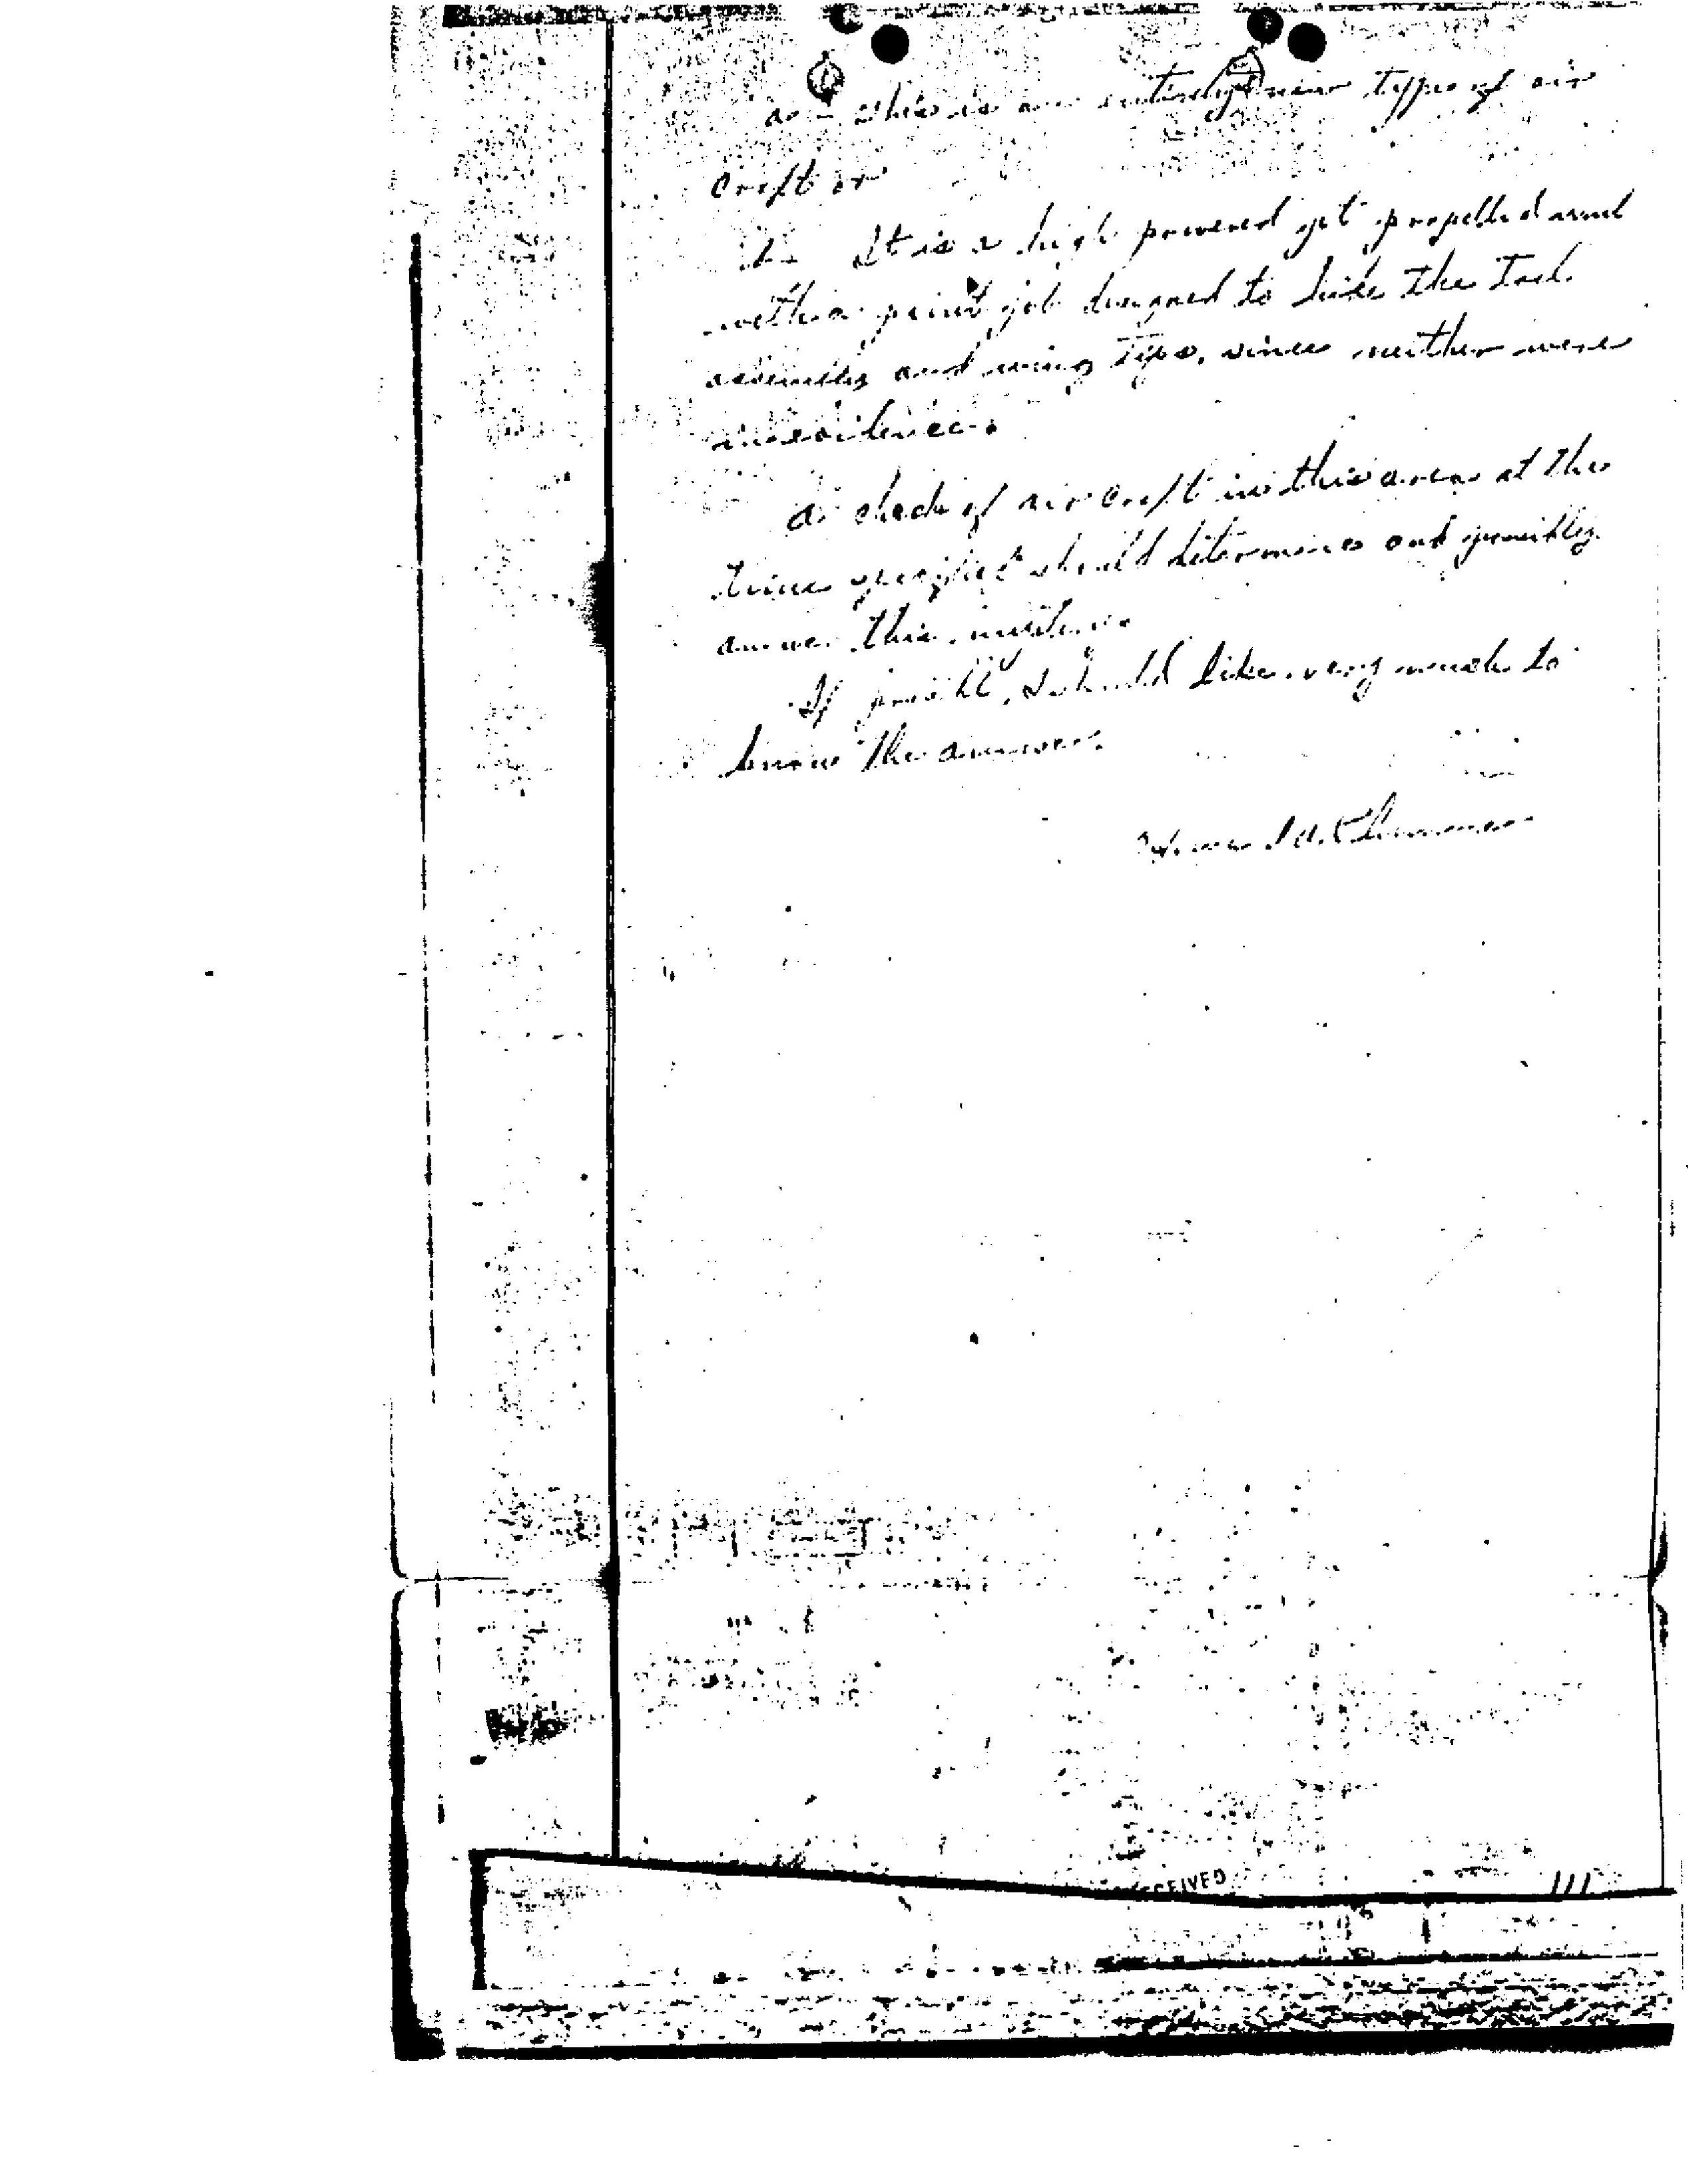 a - This is an entirely new type of air
craft or
b - It is a high powered jet propelled and
with a paint job designed to hide the tail
assembly and wing tips, since neither were
in evidence.
A check of air craft in this area at the
time specified should determine and possibly
answer this mystery.
If possible, I should like very much to
know the answer.
RECEIVED